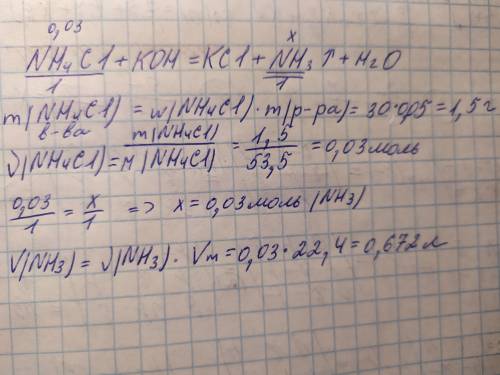 0,03 x
NH4Cl + KOH = KCl + NH3 ↑ + H2O
1 1
m(NH4Cl) = w(NH4Cl) · m(р-ра) = 30·0,05 = 1,5 г
в-ва
ν(NH4Cl) = m(NH4Cl) / M(NH4Cl) = 1,5 / 53,5 = 0,03 моль
0,03/1 = x/1 => x = 0,03 моль (NH3)
V(NH3) = ν(NH3) · Vm = 0,03·22,4 = 0,672 л